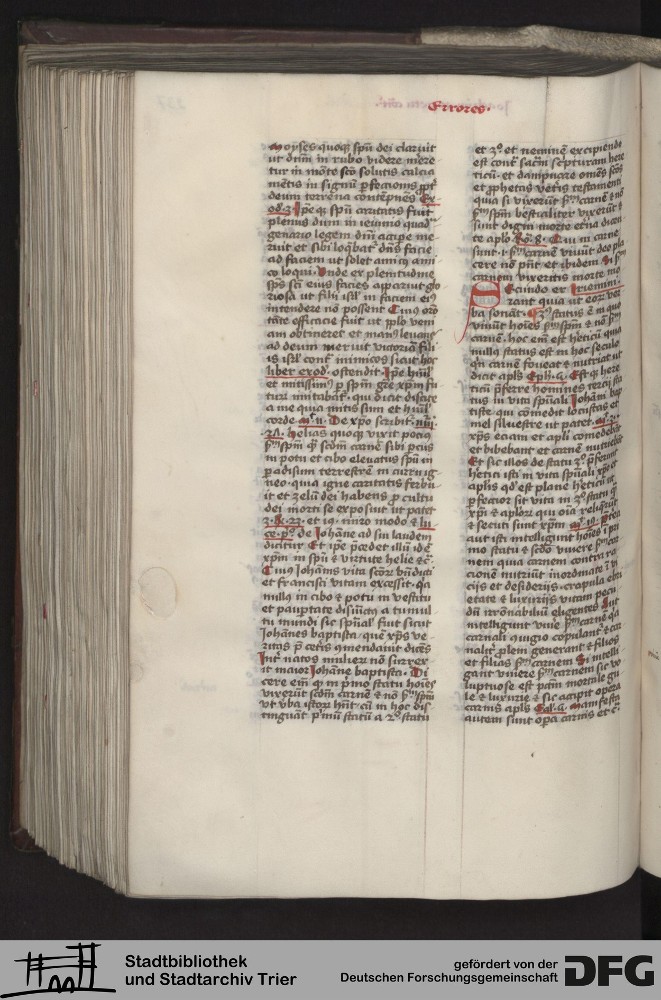 Errores·
Moyses quoqꝫ spū dei claruit
ut dnm in rubo videre mere
tur in mōte sco solutis calcia
mētis in signū ꝑfectionis ꝓpt
deum terrena contēpnēs Ex
od· 3· Ipe qꝫ spū caritatis fuit
plenus dum in ieiunio quad
genario legem dni accipe me
ruit et sibi loqbatr dns facie
ad faciem ut solet amicꝰ ami
co loqui· Unde ex plenitudine
spꝰ sci eius facies apparuit glo
riosa ut filii isrl in faciem eiꝰ
intendere nō possent Cuius oro
tāte efficacie fuit ut pplo veni
am obtineret et manꝰ levans
ad deum meruit victoriā fili
is isrl cont inimicos sicut hoc
liber exod· ostendit· Ipe
et mitissimꝰ ꝑ spm gre xpm fu
turū imitabatr· qui dicit discite
a me quia mitis sum et humil
corde· mt· 11· De xpo scribit
24· Helias quoqꝫ vixit pociꝰ
spm qꝫ scdm carnē sibi pciꝰ
in potu et cibo elevatus spū in
ꝑadisum terrestrē in curru ig
neo· quia igne caritatis ferbu
it et zelū dei habens ꝓ cultu
dei morti se exposuit ut patet
3· R· 22· et 19· miro modo & lu
ce· pº· de Iohāne ad sui laudem
dicitur Et ipe pcedet illū
xpm in spū & virtute helie &c̄
Cuius Iohānis vita scor
et francisci vitam excessit· qa
nullꝰ in cibo & potu in vestitu
et paupertate distinctꝰ a tumul
tu mundi sic spūal fuit sicut
Iohānes baptista· quē xps ve
ritas ꝑ cetis ꝯmendavit dices
Intr natos mulierū nō surrex
it maior Iohāne baptista· Di
cere em qꝫ in pmo statu hoies
vixerūt scdm carnē & nō spm
ut vba istorū hnt· cū in hoc dis
tinguāt pmū statū a 2º statu
et 3º· et neminē excipiendo
est cont sacm scpturam here
ticū· et dampnare omēs scos
et ꝓphetas veteris testamenti
quia si vixerūt carnē & nō
spm bestialiter vixerūt &
sunt digni morte etna dicen
te aplo Ro· 8· Qui in carne
sunt· i· carnē vivūt deo pla
cere nō pnt et ibidem Si
carnem vixeritis morte mo
riemini·
Secundo er
rant quia ut eorū ver
ba sonāt· 3º status ē in quo
vivūt hoies spm & nō
carnē· hoc em est hetici qua
nullꝰ status est in hoc seculo
qn carnē foveat & nutriat ut
dicit apls Eph· 5· Est qꝫ here
ticū pferre homines tercij sta
tus in vita spūali Iohāni bap
tiste· qui cōmedit locustas et
mel silvestre ut patet mt· 3·
xps eciam et apli comedebāt
et bibebant et carnē nutriebāt
Et sic illos de statu 3º pferunt
hetici isti in vita spūali xpo et
aplis qd est plane hetici ut
ꝑfectior sit vita in 3º statu qꝫ
xpi & aplorꝫ qui oia reliqrūt
& secuti sunt xpm mt· 19· Pretea
aut isti intelligunt hoies i pri
mo statu & scdo vivere car
nem quia carnem contra ra
cionē nutriūt inordinate i vi
cijs et desiderijs· crapula ebri
etate & luxurijs vitam pecu
dū irronabiliū eligentes Aut
intelligunt vive carnē qa
carnali ꝯiugio copulantr & car
nalitr plem generant & filios
et filias carnem Si intelli
gant vivere carnem sic vo
luptuose est pctm mortale gu
le & luxurie & sic accipit opera
carnis apls Gal· 5· Manifesta
autem sunt opera carnis et c̄·
Stadtbibliothek
und Stadtarchiv Trier
gefördert von der
Deutschen Forschungsgemeinschaft
DFG